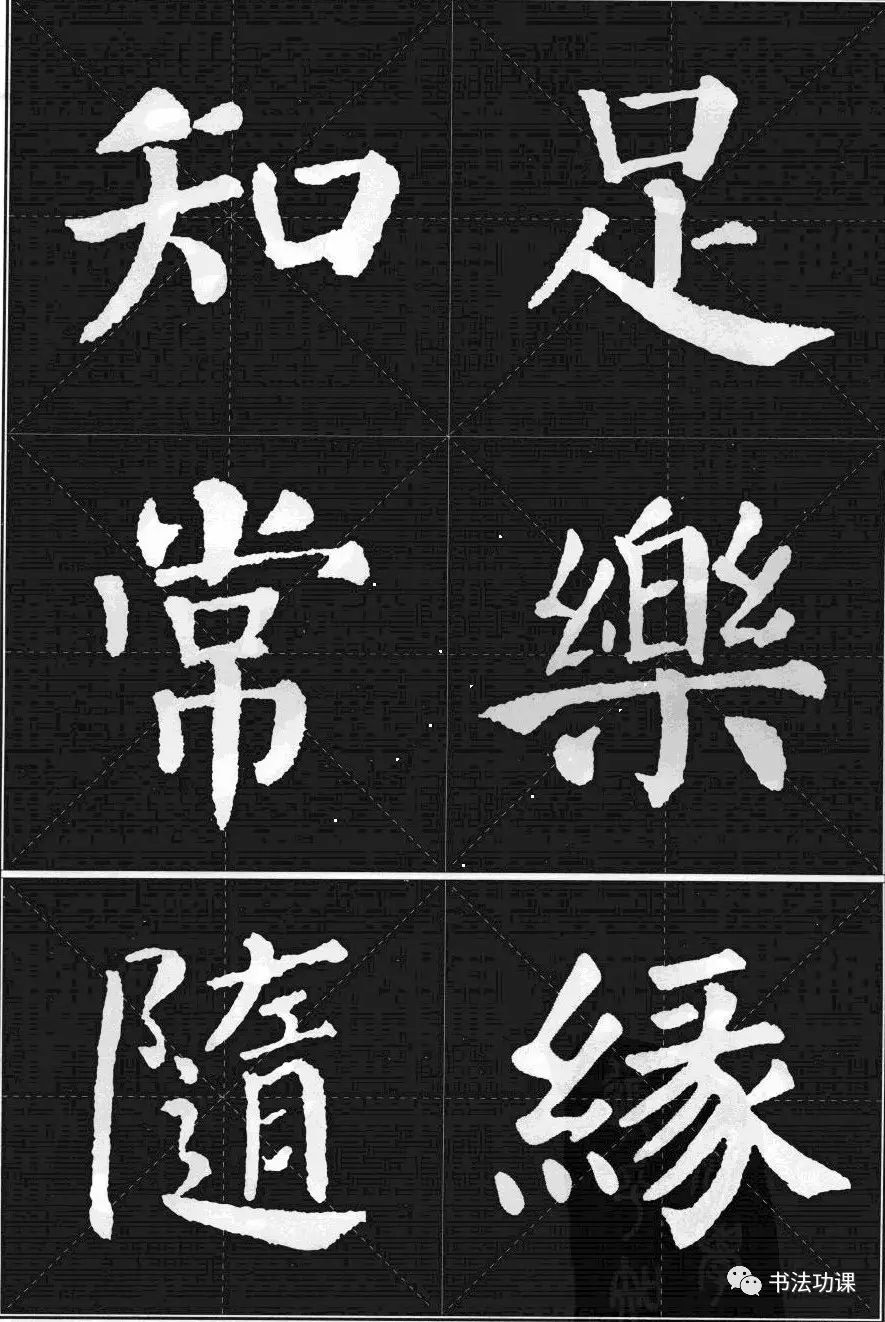 知足
常樂
隨緣
书法功课